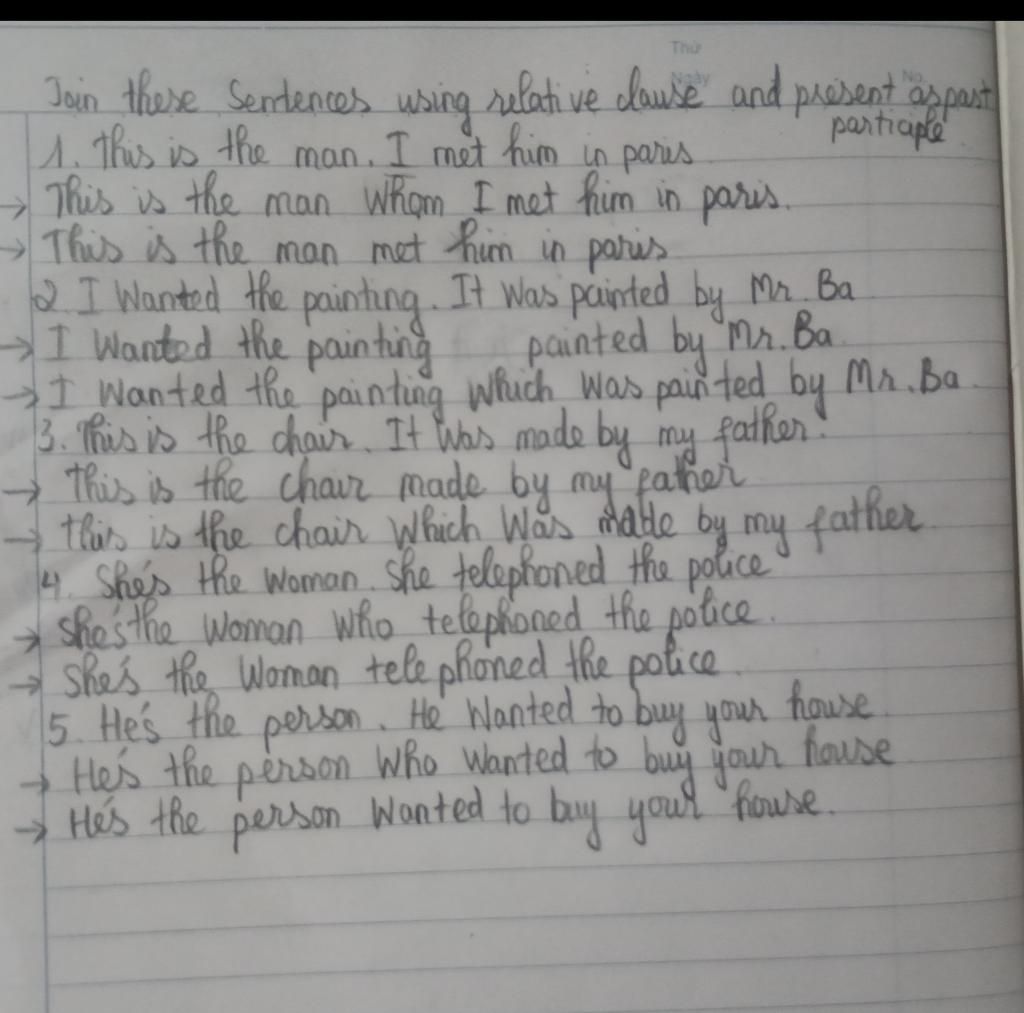 Thứ
Ngày
No.
Join these Sentences using relative clause and present as past
participle
1. This is the man. I met him in paris
→ This is the man Whom I met him in paris.
→ This is the man met him in paris
2. I Wanted the painting. It Was painted by Mr. Ba
→ I Wanted the painting painted by Mr. Ba
→ I Wanted the painting Which Was painted by Mr. Ba.
3. This is the chair. It Was made by my father.
→ This is the chair made by my father
→ this is the chair Which Was made by my father
4. She's the Woman. She telephoned the police
→ She's the Woman Who telephoned the police.
→ She's the Woman telephoned the police.
5. He's the person. He Wanted to buy your house.
→ He's the person Who Wanted to buy your house
→ He's the person Wanted to buy your house.